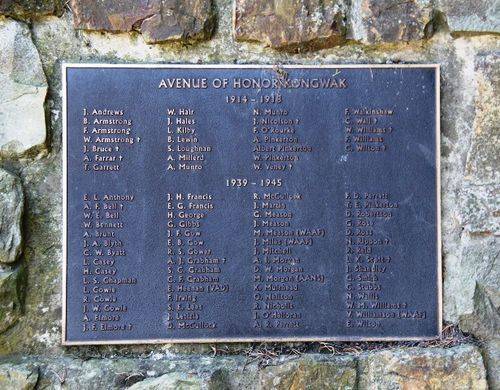 AVENUE OF HONOR KONGWAK
1914 - 1918
J. Andrews
B. Armstrong
F. Armstrong
W. Armstrong †
J. Bruce †
A. Farrar †
T. Garrett
W. Hair
J. Hales
L. Kilby
B. Lewin
S. Loughnan
A. Millerd
A. Munro
N. Munro
J. Nicolson †
F. O'Rourke
A. Pinkerton
Albert Pinkerton
W. Pinkerton
W. Veney †
F. Walkinshaw
C. Wall †
W. Williams †
F. Williams
C. Wilton †
1939 - 1945
E. L. Anthony
A. F. Bell †
W. E. Bell
W. Bennett
A. Brunt
J. A. Blyth
C. W. Byatt
L. Casey
H. Casey
L. S. Chapman
L. Cowie
R. Cowie
J. W. Cowie
A. Elmore
J. F. Elmore †
J. H. Francis
E. G. Francis
H. George
G. Gibbs
J. F. Gow
E. B. Gow
R. S. Gower
A. J. Grabham †
S. C. Grabham
C. F. Grabham
E. Heenan [VAD]
F. Irving
S. E. Lees
J. Letizia
D. McCullock
R. McCullock
J. Martin
G. Meason
J. Meason
M. Meason [WAAF]
J. Miles [WAAF]
J. Mitchell
A. I. Morgan
D. W. Morgan
M. Morgan [AANS]
K. Mulrhead
G. Neilson
R. Nicholls
J. O'Halloran
A. R. Parrett
F. D. Parrett
T. E. Pinkerton
D. Robertson
G. Rose
D. Ross
N. Ribbon †
R. Reid
L. K. Scott †
J. Smedley
C. Smith
C. Stubbs
N. Willis
W. M. Williams †
V. Williamson [WAAF]
E. Wilson